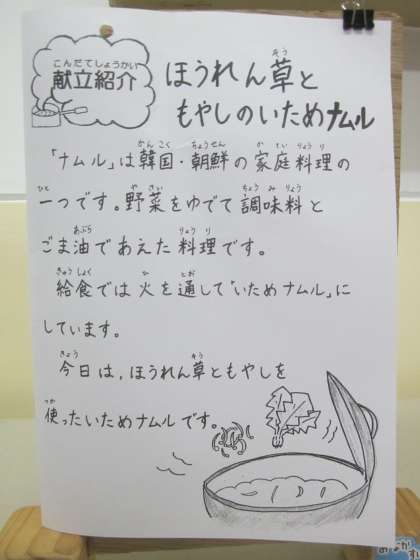 こんだてしょうかい
献立紹介
ほうれん草と
もやしのいためナムル
「ナムル」は韓国・朝鮮の家庭料理の
一つです。野菜をゆでて調味料と
ごま油であえた料理です。
給食では火を通して「いためナムル」に
しています。
今日は、ほうれん草ともやしを
使ったいためナムルです。